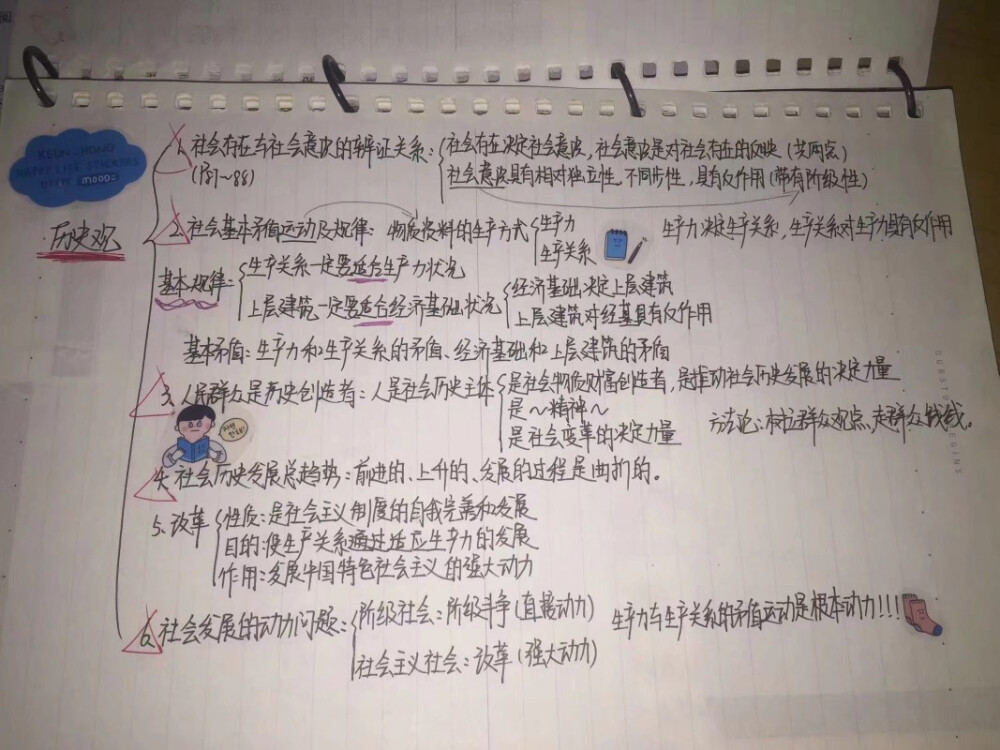 KEUN_HONG
HAPPY LIFE STICKERS
历史观
1. 社会存在与社会意识的辩证关系：社会存在决定社会意识，社会意识是对社会存在的反映
(P87~88) 社会意识具有相对独立性，不同步性，具有反作用(带有阶级性)
2. 社会基本矛盾运动及规律：物质资料的生产方式 生产力 生产力决定生产关系，生产关系对生产力具有反作用
生产关系
基本规律：生产关系一定要适合生产力状况
上层建筑一定要适合经济基础状况 经济基础决定上层建筑
上层建筑对经基具有反作用
基本矛盾：生产力和生产关系的矛盾、经济基础和上层建筑的矛盾
3. 人民群众是历史创造者：人是社会历史主体 是社会物质财富创造者，是推动社会历史发展的决定力量
是～精神～
是社会变革的决定力量 方法论：树立群众观点，走群众路线。
4. 社会历史发展总趋势：前进的、上升的、发展的过程是曲折的。
5. 改革 性质：是社会主义制度的自我完善和发展
目的：使生产关系通过适应生产力的发展
作用：发展中国特色社会主义的强大动力
6. 社会发展的动力问题：阶级社会：阶级斗争(直接动力) 生产力与生产关系的矛盾运动是根本动力!!!
社会主义社会：改革(强大动力)